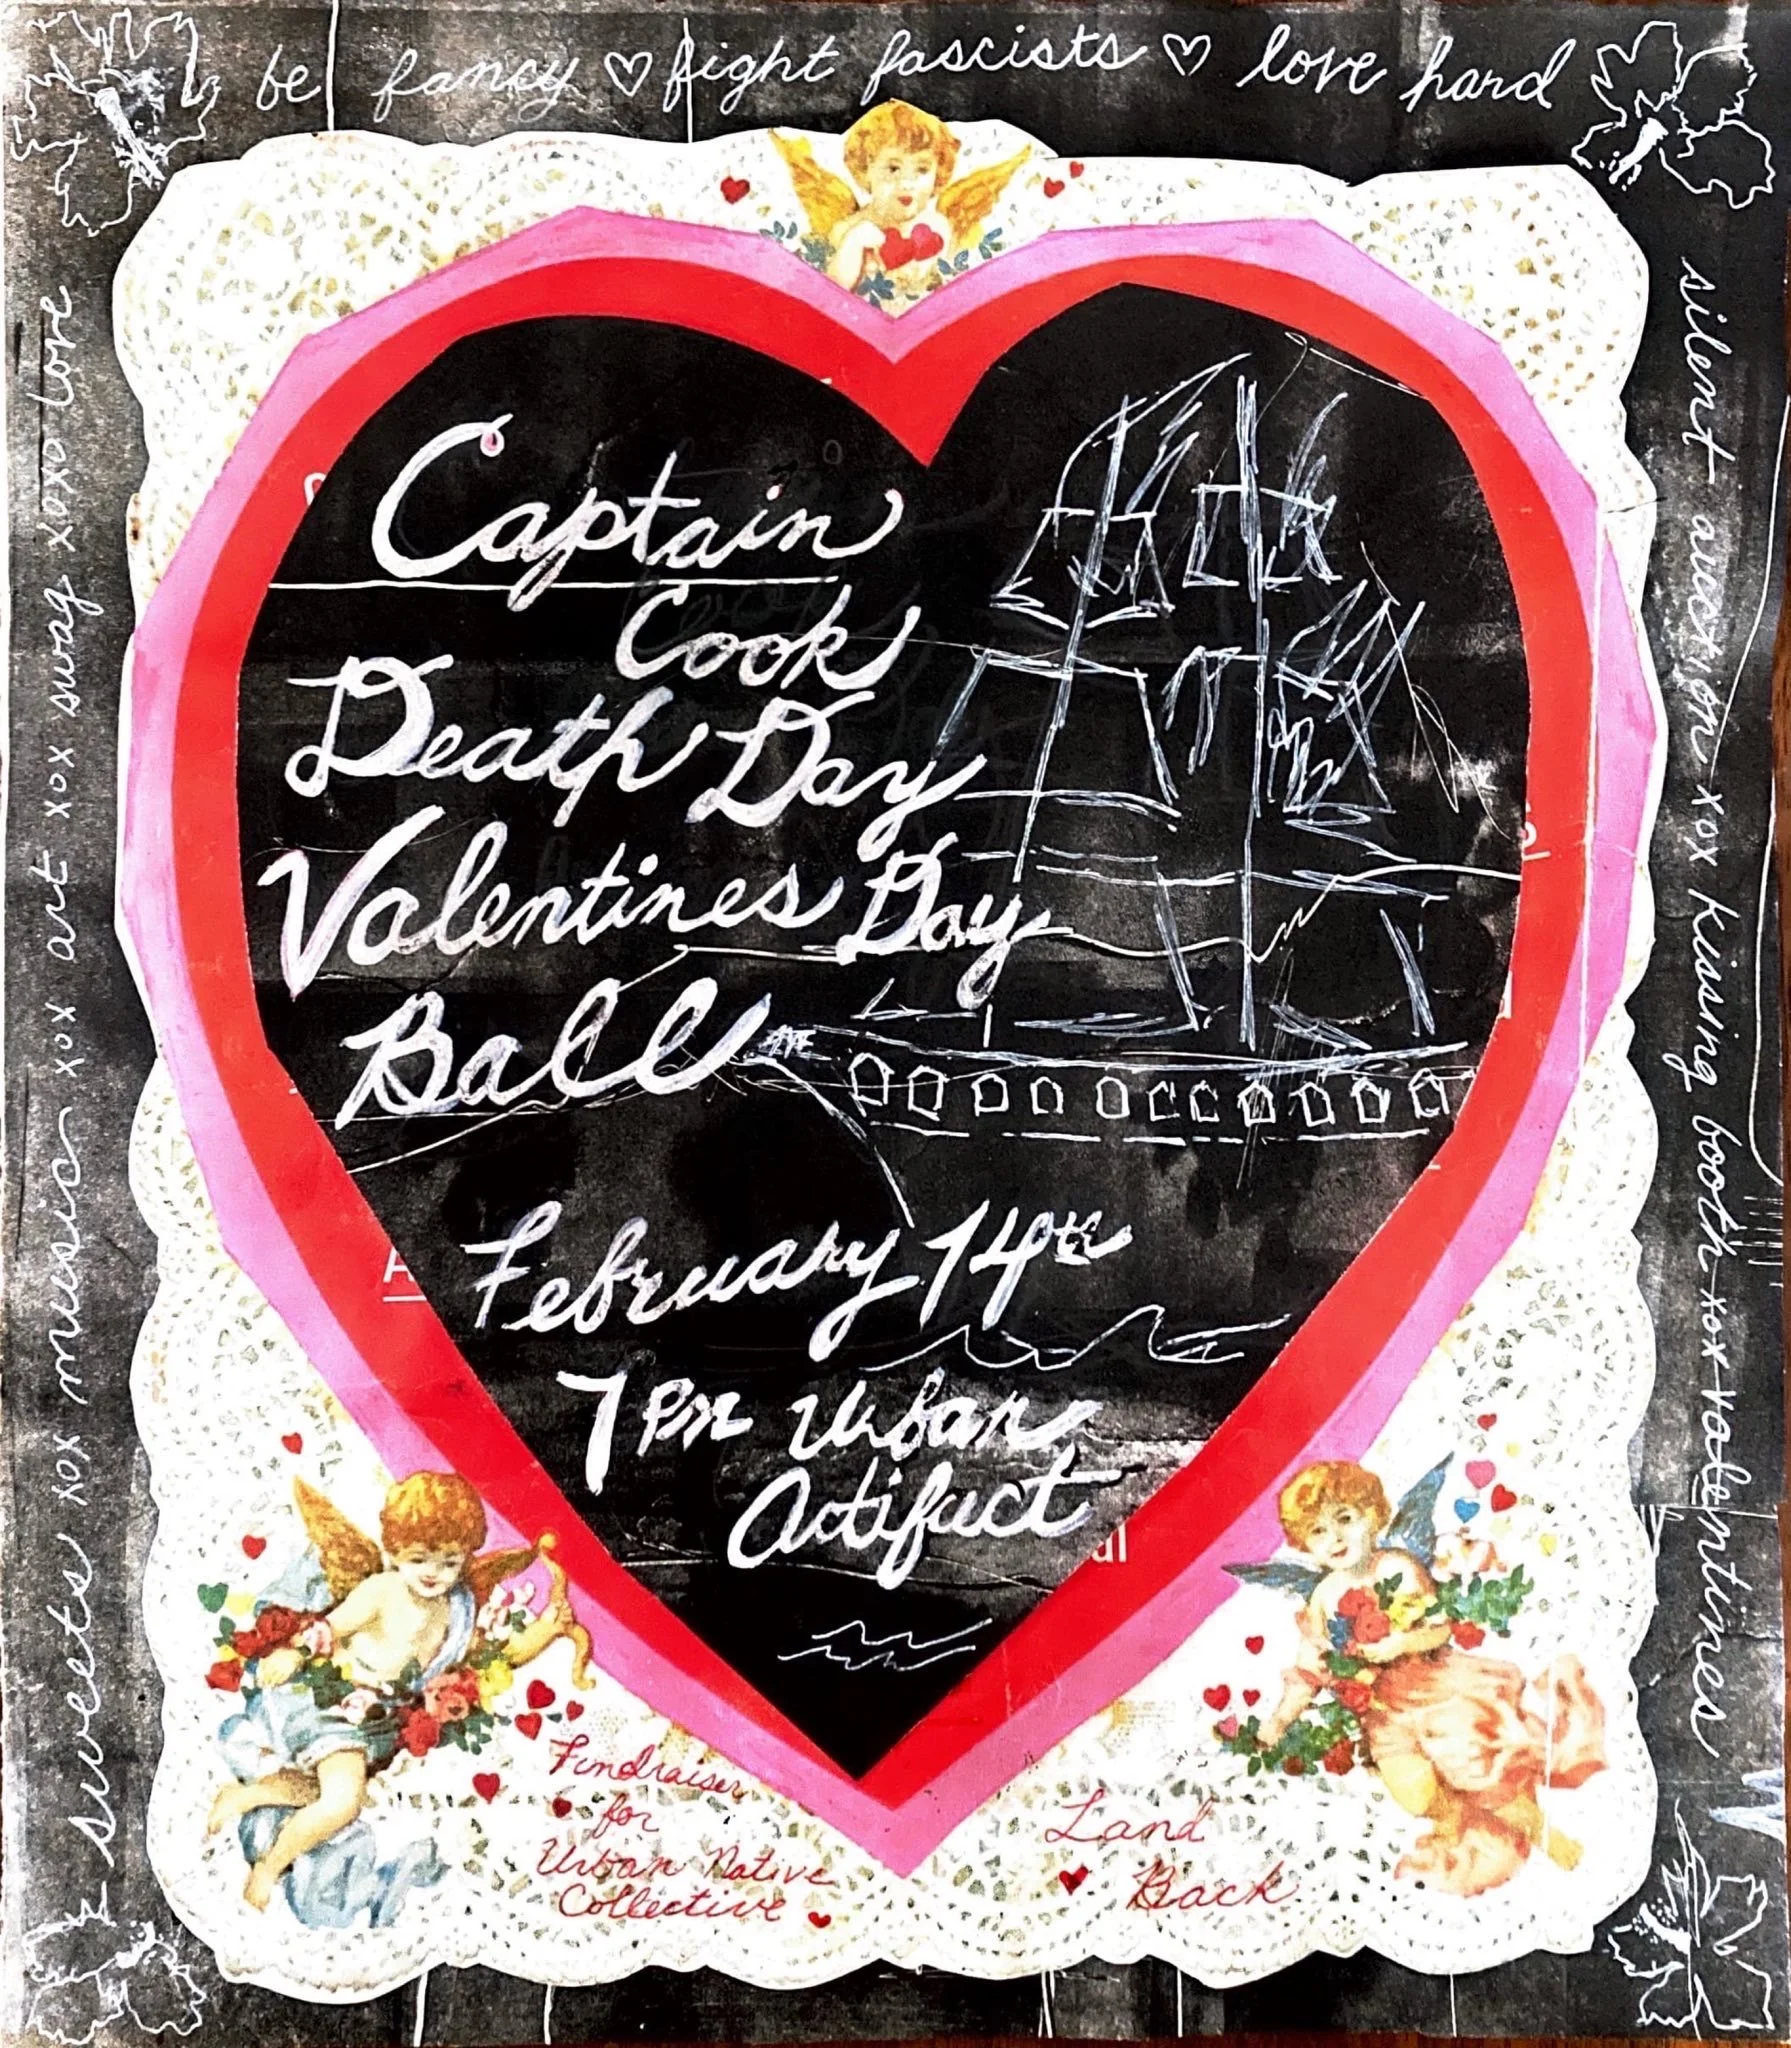 be fancy ♡ fight fascists ♡ love hard
silent auction xox kissing booth xox valentines
sweets xox music xox art xox swag xoxo love
Captain
Cook
Death Day
Valentines Day
Ball
February 14th
7pm Urban
Artifact
Fundraiser
for
Urban Native
Collective
Land
Back